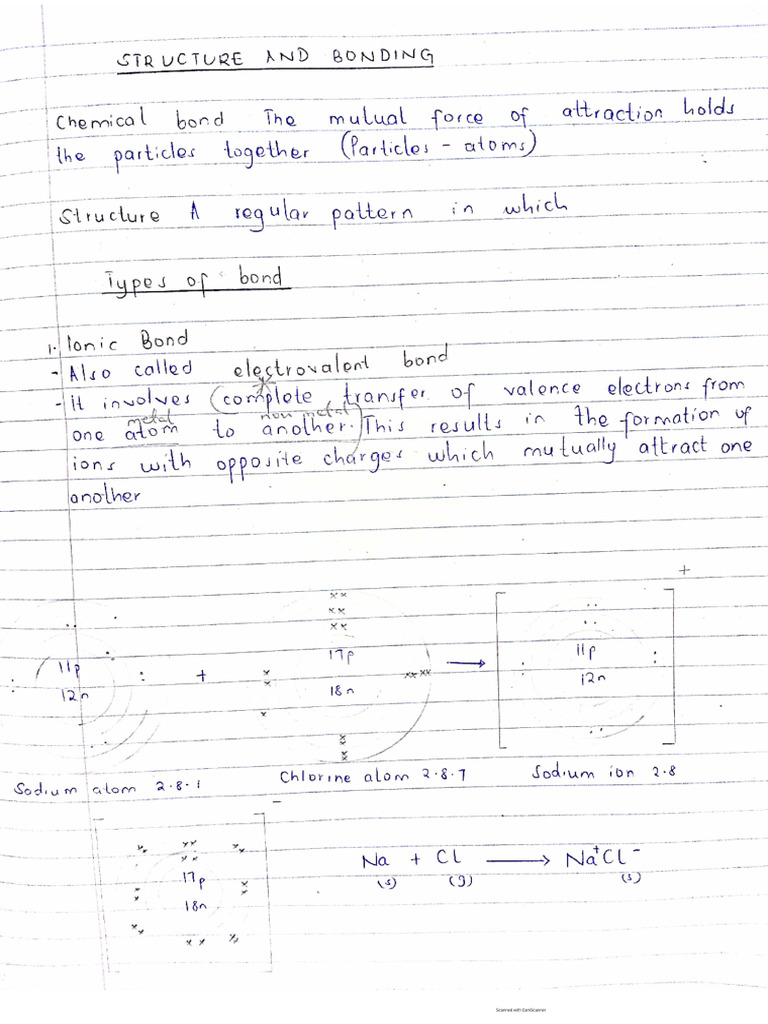 STRUCTURE AND BONDING
Chemical bond The mutual force of attraction holds
the particles together (Particles - atoms)
Structure A regular pattern in which
Types of bond
1. Ionic Bond
- Also called electrovalent bond
- It involves (complete transfer of valence electrons from
metal non metal
one atom to another.) This results in the formation of
ions with opposite charges which mutually attract one
another
+
17p
11p 11p
+ →
12n 18n 12n
Sodium atom 2.8.1 Chlorine atom 2.8.7 Sodium ion 2.8
−
Na + Cl → Na⁺Cl⁻
(s) (g) (s)
17p
18n
Scanned with CamScanner